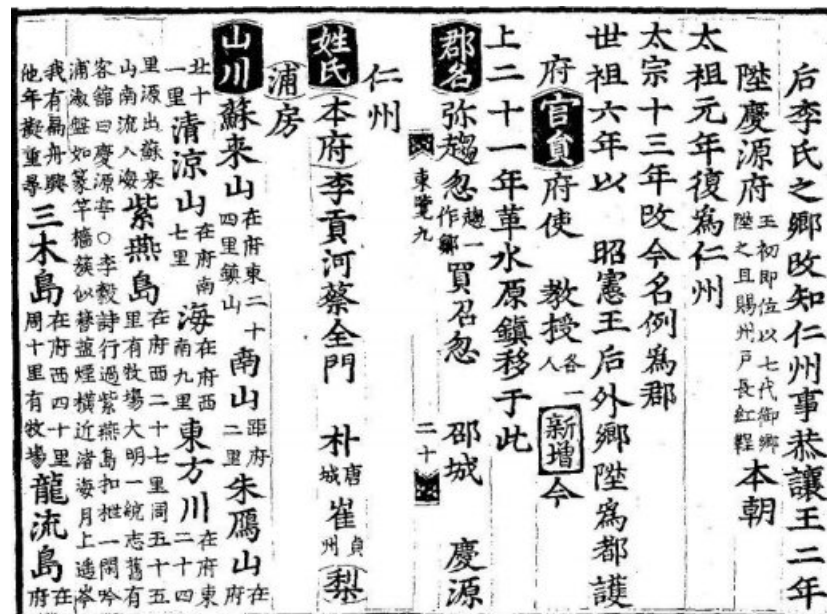 后李氏之鄉改知仁州事恭讓王二年
陞慶源府王初即位以七代御鄉陞之且賜州戶長紅鞓本朝
太祖元年復爲仁州
太宗十三年改今名例爲郡
世祖六年以 昭憲王后外鄉陞爲都護
府官員府使 敎授各一人新增今
上二十一年革水原鎭移于此
郡名弥趨忽趨一作鄒買召忽 邵城 慶源
東覽九 二十
仁州
姓氏本府李貢河蔡全門 朴唐城崔貞州梨
浦房
山川蘇来山在府東二十四里鎭山南山距府二里朱鴈山在府
北十一里清凉山在府南七里海在府西南九里東方川在府東二十四
里源出蘇来山南流入海紫燕島在府西二十七里周五十五里有牧場大明一統志舊有
客舘曰慶源亭○李穀詩行過紫燕島扣枻一閑吟浦溆盤如篆竿檣簇似簪盬煙橫近渚海月上遙岑
我有扁舟興他年擬重尋三木島在府西四十里周十里有牧場龍流島在府